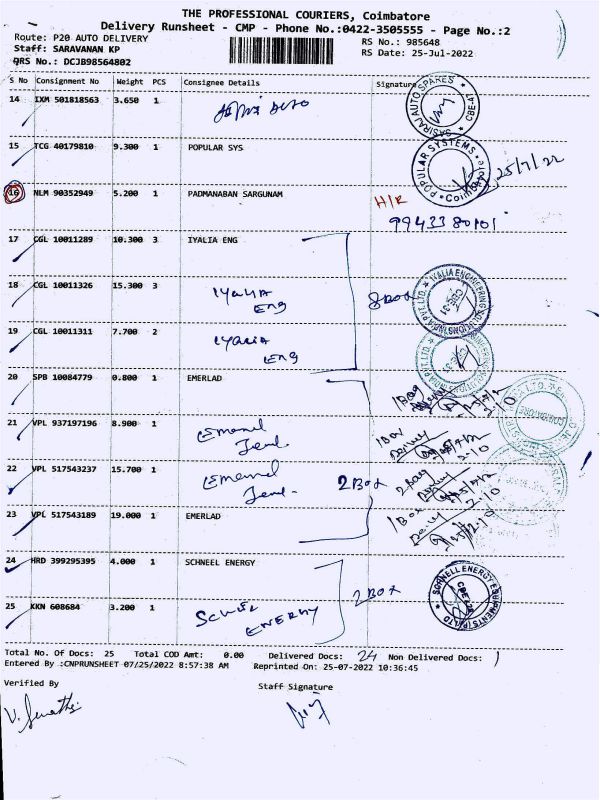 THE PROFESSIONAL COURIERS, Coimbatore
Delivery Runsheet - CMP - Phone No.:0422-3505555 - Page No.:2
Route: P20 AUTO DELIVERY
RS No.: 985648
Staff: SARAVANAN KP
RS Date: 25-Jul-2022
QRS No.: DCJB98564802
S No Consignment No Weight PCS Consignee Details Signature
14 IXM 501818563 3.650 1
SASIRAJ AUTO SPARES * CBE-41
15 TCG 40179810 9.300 1 POPULAR SYS
POPULAR SYSTEMS * Coimbatore * 25/7/22
16 NLM 90352949 5.200 1 PADMANABAN SARGUNAM
H/R
9943380101
17 CGL 10011289 10.300 3 IYALIA ENG
18 CGL 10011326 15.300 3 IYALIA Eng 8 Box
IYALIA ENGINEERING SOLUTIONS INDIA PVT. LTD.
19 CGL 10011311 7.700 2 IYALIA Eng
20 SPB 10084779 0.800 1 EMERLAD
1 Bag
21 VPL 937197196 8.900 1 Emerald Jewel.
1 Box
22 VPL 517543237 15.700 1 Emerald Jewel. 2 Box
2 Bag
23 VPL 517543189 19.000 1 EMERLAD
1 Box
24 HRD 399295395 4.000 1 SCHNEEL ENERGY
2 Box
SCHNELL ENERGY EQUIPMENTS (P) LTD
25 KKN 608684 3.200 1 ENERGY
Total No. Of Docs: 25 Total COD Amt: 0.00 Delivered Docs: 24 Non Delivered Docs: 1
Entered By :CNPRUNSHEET 07/25/2022 8:57:38 AM Reprinted On: 25-07-2022 10:36:45
Verified By
Staff Signature